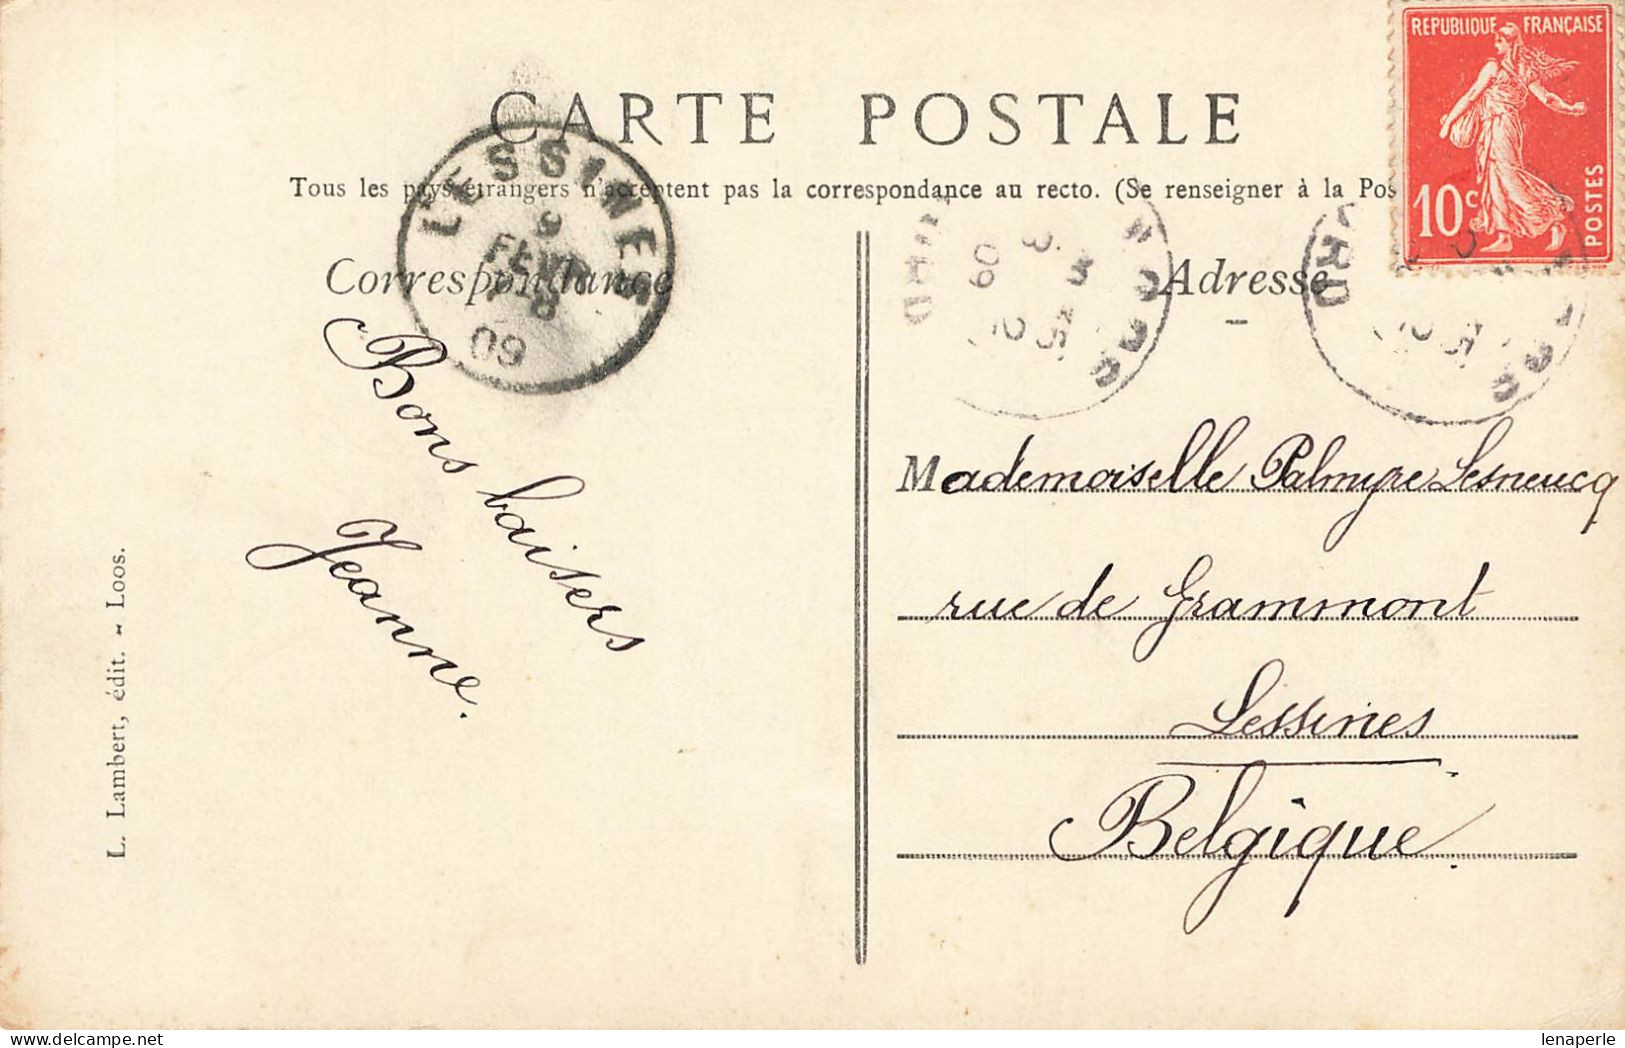 CARTE POSTALE
Tous les pays étrangers n'acceptent pas la correspondance au recto. (Se renseigner à la Pos
REPUBLIQUE FRANÇAISE
10c
POSTES
LESSINES
9
FEVR
8
09
Correspondance
Adresse
Bons baisers
Jeanne.
Mademoiselle Palmyre Lesneucq
rue de Grammont
Lessines
Belgique.
L. Lambert, édit. - Loos.
lenaperle